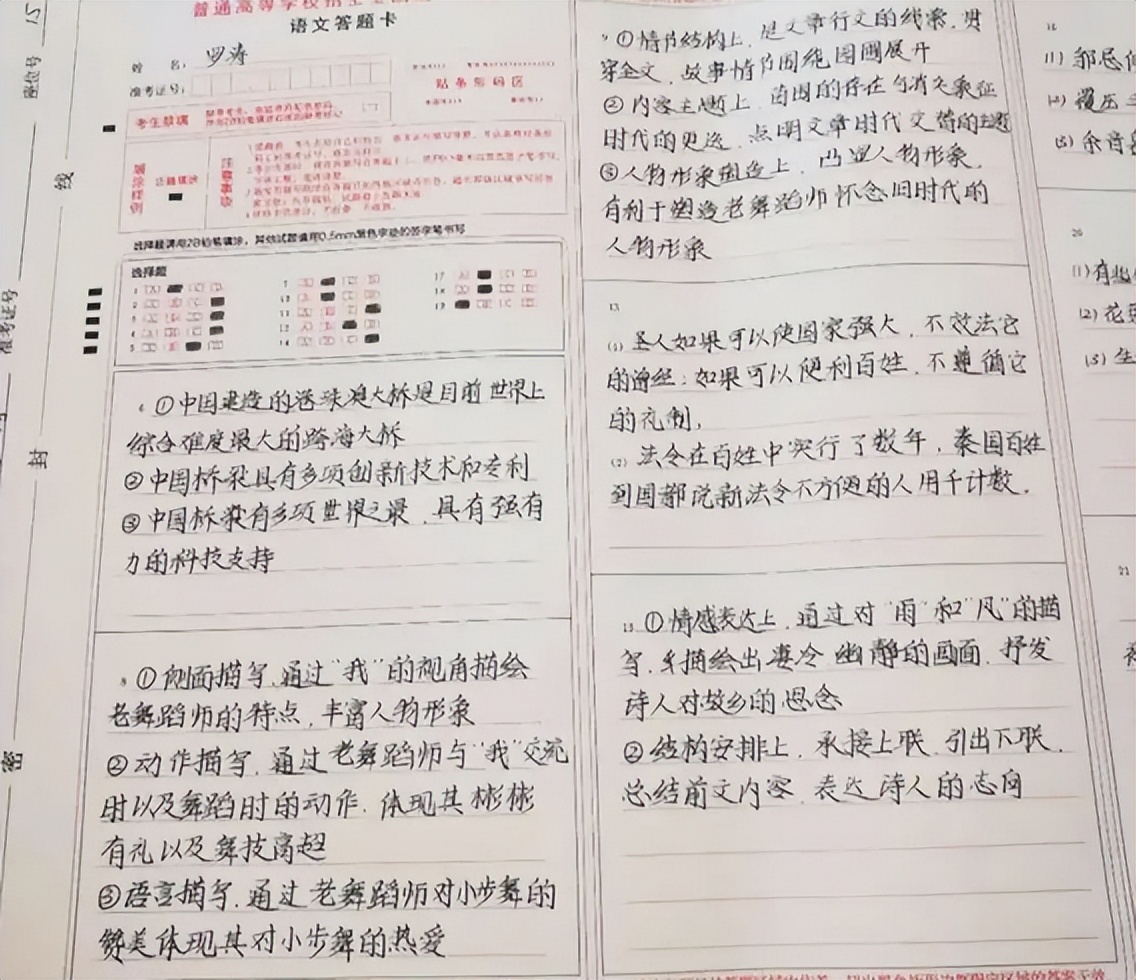 普通高等学校招生
语文答题卡
姓 名：罗涛
准考证号：
贴条形码区
考生禁填
填涂样例
注意事项
选择题请用2B铅笔填涂，其他试题请用0.5mm黑色字迹的签字笔书写
选择题
座位号 15
准考证号
线
封
密
6 ①中国建造的港珠澳大桥是目前世界上
综合难度最大的跨海大桥
②中国桥梁具有多项创新技术和专利
③中国桥梁有多项世界之最，具有强有
力的科技支持
8 ①侧面描写，通过"我"的视角描绘
老舞蹈师的特点，丰富人物形象
②动作描写，通过老舞蹈师与"我"交流
时以及舞蹈时的动作，体现其彬彬
有礼以及舞技高超
③语言描写，通过老舞蹈师对小步舞的
赞美体现其对小步舞的热爱
9 ①情节结构上，是文章行文的线索，贯
穿全文，故事情节围绕园圃展开
②内容主题上，苗圃的存在与消失象征
时代的更迭，点明文章时代交替的主题
③人物形象塑造上，凸显人物形象，
有利于塑造老舞蹈师怀念旧时代的
人物形象
13
(1) 圣人如果可以使国家强大，不效法它
的曾经；如果可以便利百姓，不遵循它
的礼制，
(2) 法令在百姓中实行了数年，秦国百姓
到国都说新法令不方便的人用千计数，
15 ①情感表达上，通过对"雨"和"风"的描
写，描绘出凄冷幽静的画面，抒发
诗人对故乡的思念
②结构安排上，承接上联，引出下联，
总结前文内容，表达诗人的志向
16
(1) 邹忌
(2) 覆压三
(3) 余音
20
(1) 有
(2) 花
(3) 生
21